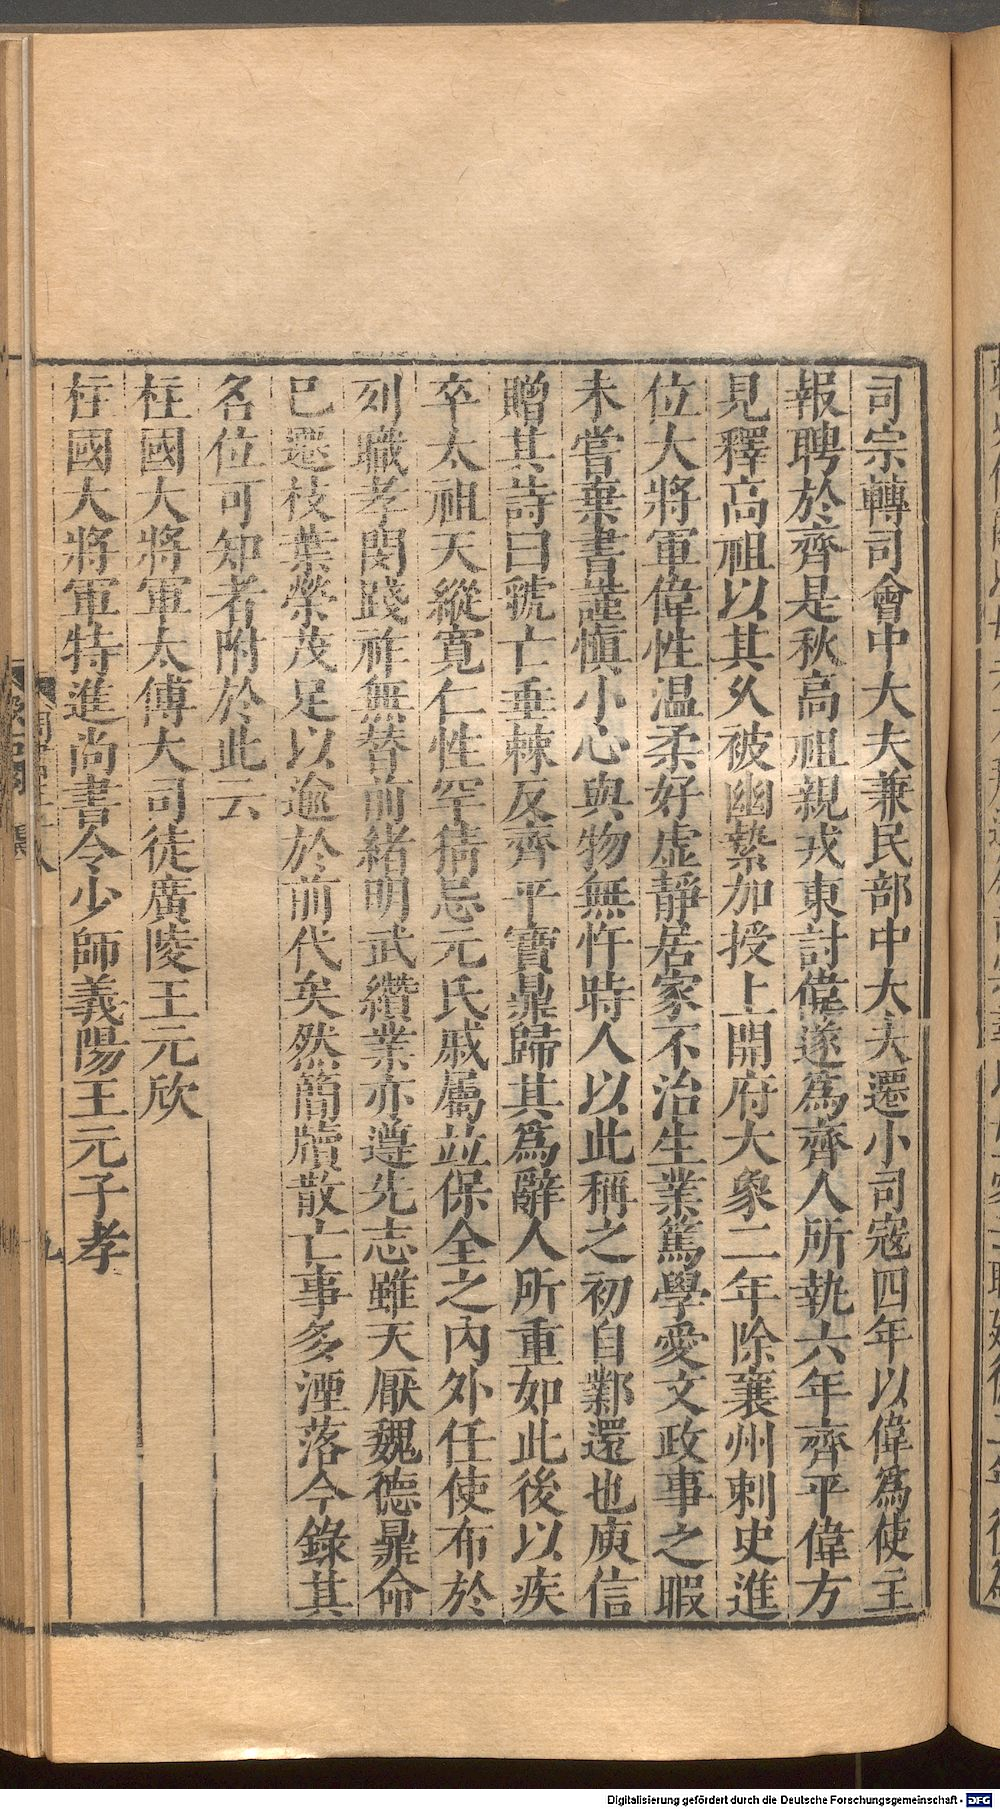 司宗轉司會中大夫兼民部中大夫遷小司寇四年以偉爲使主
報聘於齊是秋高祖親戎東討偉遂爲齊人所執六年齊平偉方
見釋高祖以其久被幽縶加授上開府大象二年除襄州刺史進
位大將軍偉性温柔好虛靜居家不治生業篤學愛文政事之暇
未嘗棄書謹愼小心與物無忤時人以此稱之初自鄴還也庾信
贈其詩曰虢亡垂棘反齊平寶鼎歸其爲辭人所重如此後以疾
卒太祖天縱寛仁性罕猜忌元氏戚屬並保全之內外任使布於
列職孝閔踐祚無替前緒明武纘業亦遵先志雖天厭魏德鼎命
已遷枝葉榮茂足以逾於前代矣然簡牘散亡事多湮落今錄其
名位可知者附於此云
柱國大將軍太傅大司徒廣陵王元欣
柱國大將軍特進尚書令少師義陽王元子孝
九
Digitalisierung gefördert durch die Deutsche Forschungsgemeinschaft - DFG